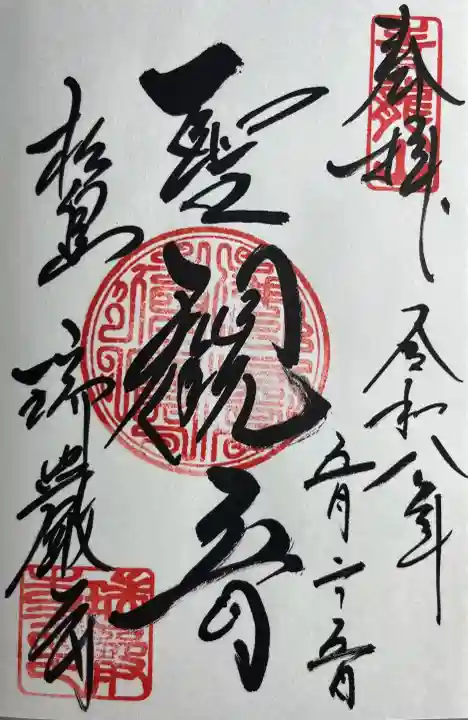 奉拝
令和八年
五月二十五日
聖観音
松島 瑞巌寺